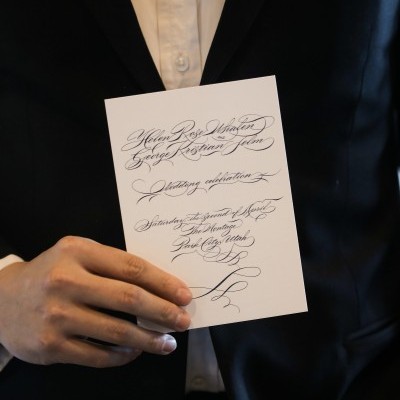 Helen Rose Whalen
and
George Kristian Holm
Wedding celebration
Saturday, the second of April
The Montage
Park City, Utah